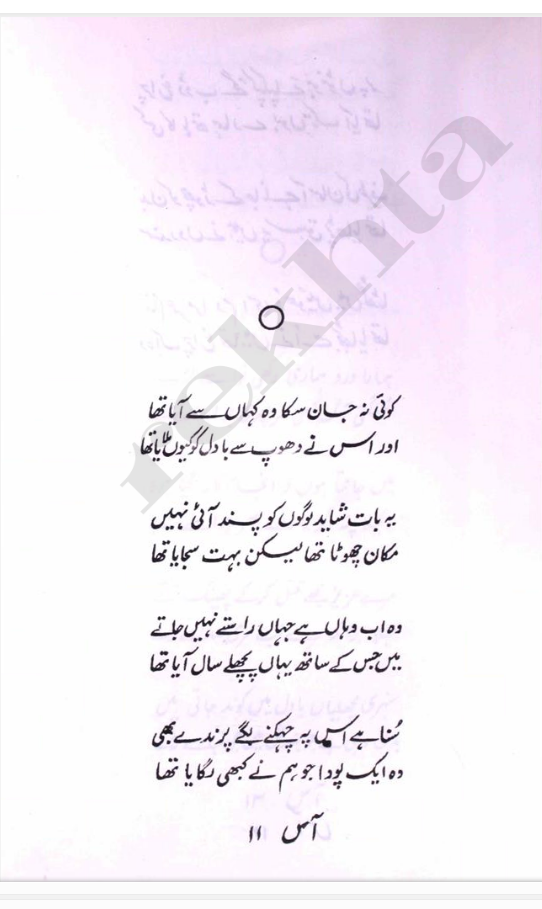 کوئی نہ جان سکا وہ کہاں سے آیا تھا
اور اس نے دھوپ سے بادل کو کیوں ملایا تھا
یہ بات شاید لوگوں کو پسند آئی نہیں
مکان چھوٹا تھا لیکن بہت سجایا تھا
وہ اب وہاں ہے جہاں راستے نہیں جاتے
میں جس کے ساتھ یہاں پچھلے سال آیا تھا
سُنا ہے اس پہ چہکنے لگے پرندے بھی
وہ ایک پودا جو ہم نے کبھی لگایا تھا
آس ۱۱
rekhta